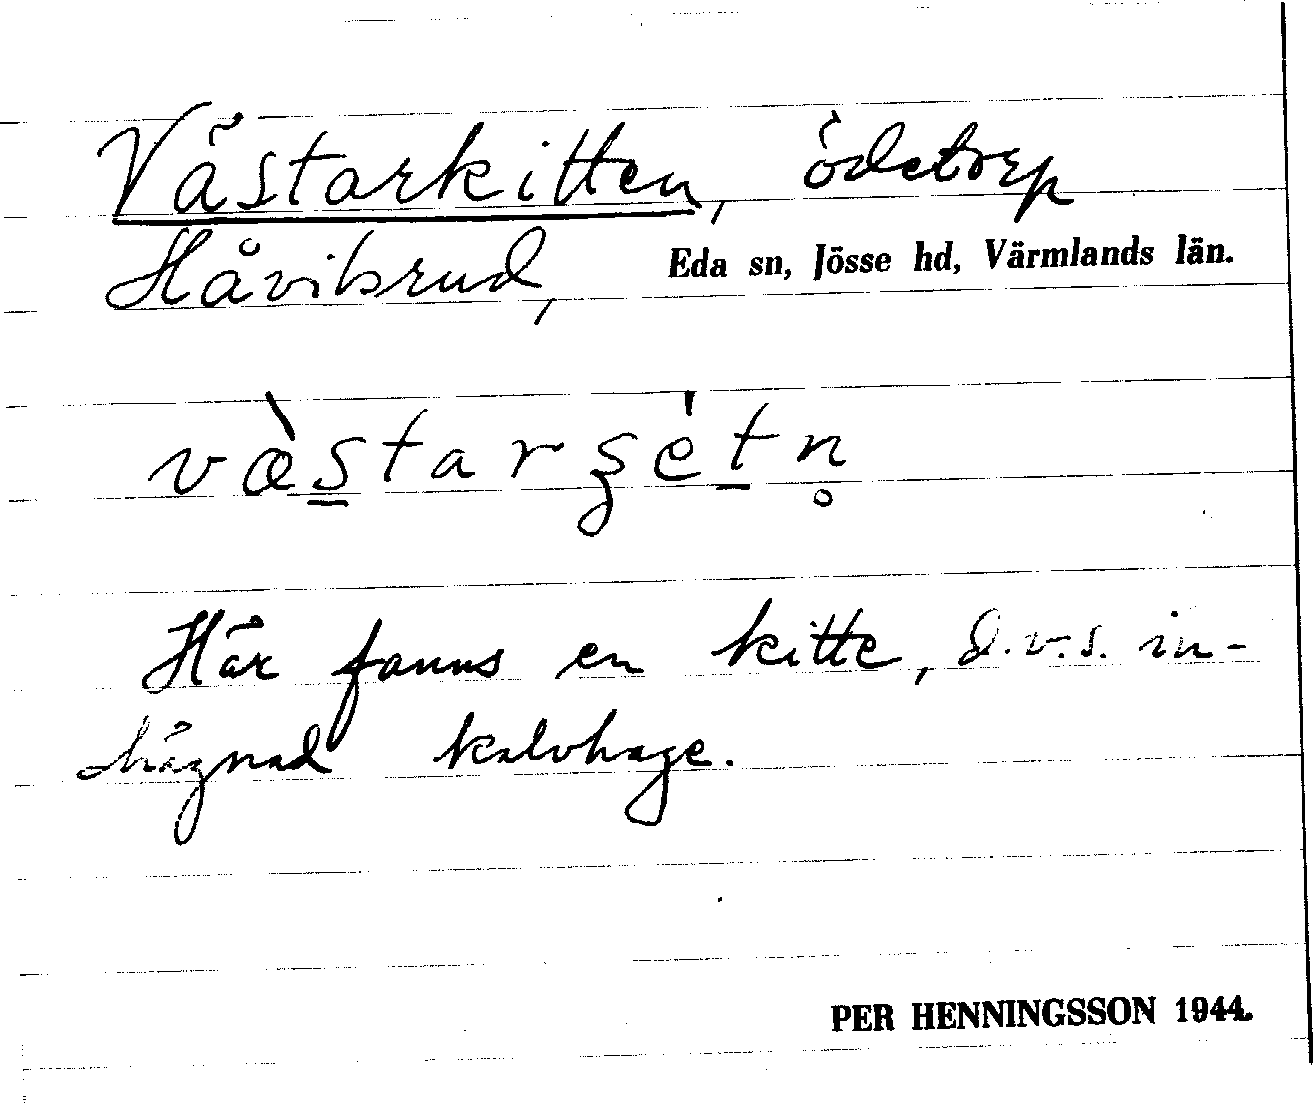 Västarkitten, ödetorp
Håvibrud, Eda sn, Jösse hd, Värmlands län.
væ̀s̲tarʂét̲n̥
Här fanns en kitte, d.v.s. in-
hägnad kalvhage.
PER HENNINGSSON 1944.